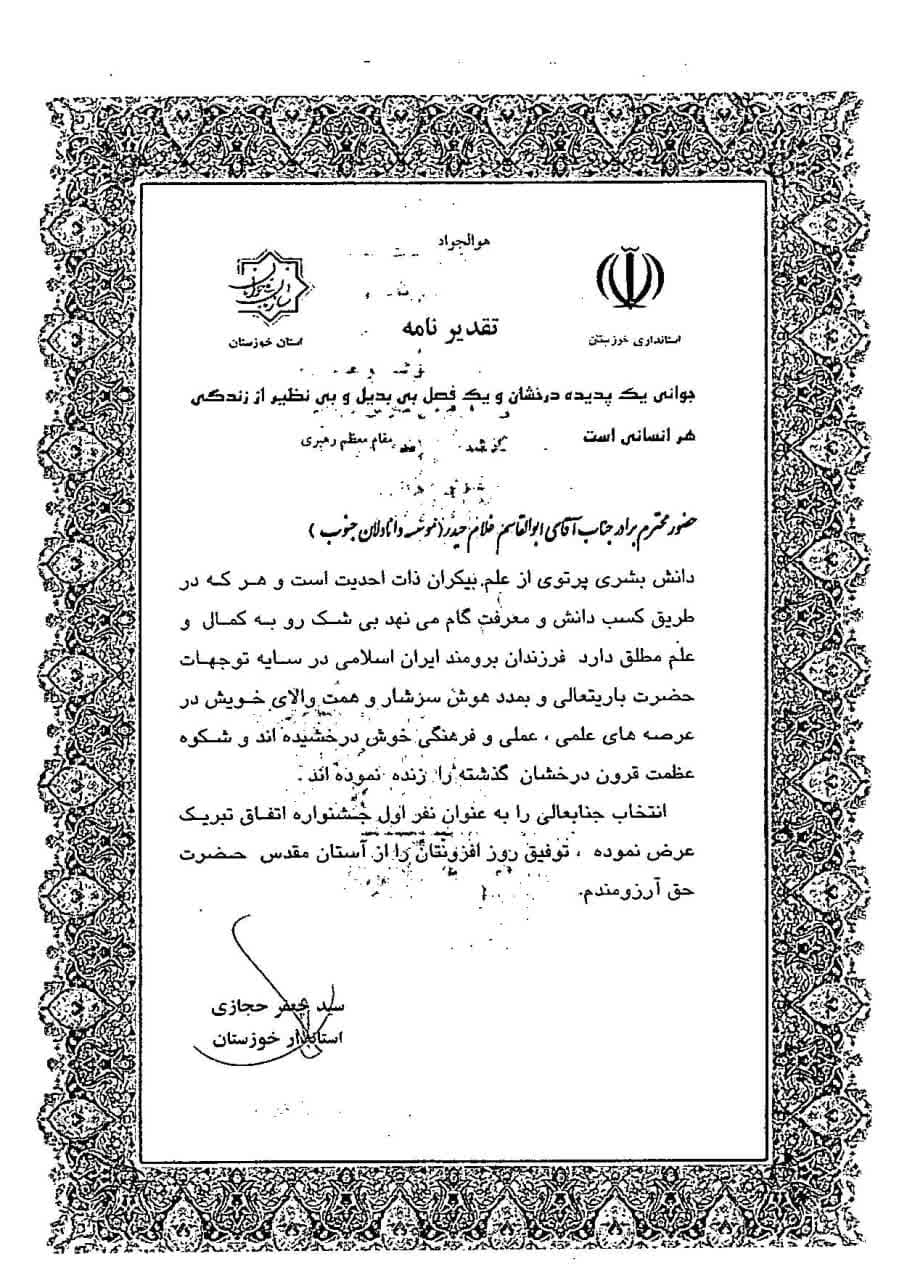 هوالجواد
استانداری خوزستان
سازمان ملی جوانان
استان خوزستان
تقدیر نامه
جوانی یک پدیده درخشان و یک فصل بی بدیل و بی نظیر از زندگی
هر انسانی است
مقام معظم رهبری
حضور محترم برادر جناب آقای ابوالقاسم غلام حیدر (موسسه دانادلان جنوب )
دانش بشری پرتوی از علم بیکران ذات احدیت است و هر که در
طریق کسب دانش و معرفت گام می نهد بی شک رو به کمال و
علم مطلق دارد فرزندان برومند ایران اسلامی در سایه توجهات
حضرت باریتعالی و بمدد هوش سرشار و همت والای خویش در
عرصه های علمی ، عملی و فرهنگی خوش درخشیده اند و شکوه
عظمت قرون درخشان گذشته را زنده نموده اند .
انتخاب جنابعالی را به عنوان نفر اول جشنواره اتفاق تبریک
عرض نموده ، توفیق روز افزونتان را از آستان مقدس حضرت
حق آرزومندم.
سید جعفر حجازی
استاندار خوزستان